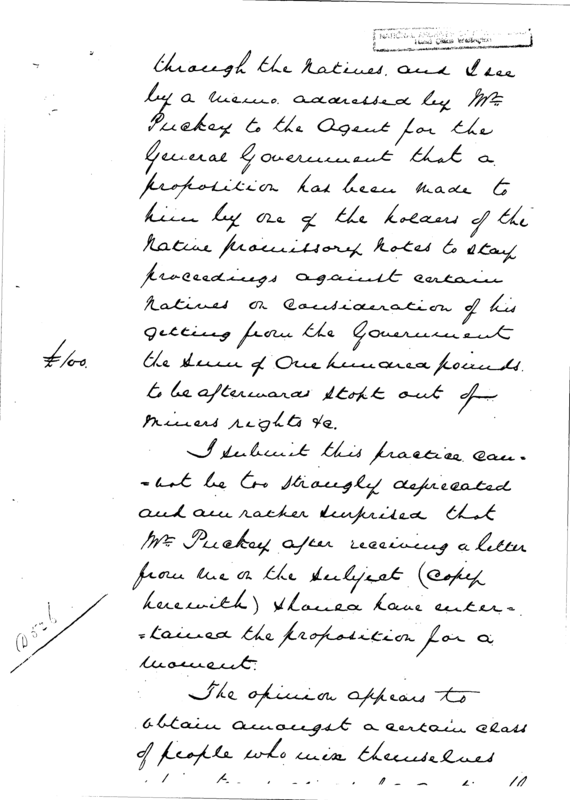 NATIONAL ARCHIVES
through the Natives. and I see
by a memo. addressed by Mr
Puckey to the Agent for the
General Government that a
proposition has been made to
him by one of the holders of the
Native promissory Notes to stay
proceedings against certain
Natives on consideration of his
getting from the Government
£100. the sum of One hundred pounds.
to be afterwards stopt out of
Miners rights &c.
I submit this practice can-
-not be too strongly deprecated
and am rather surprised that
Mr Puckey after receiving a letter
from me on the subject (copy
herewith) should have enter-
-tained the proposition for a
moment.
The opinion appears to
obtain amongst a certain class
of people who mix themselves